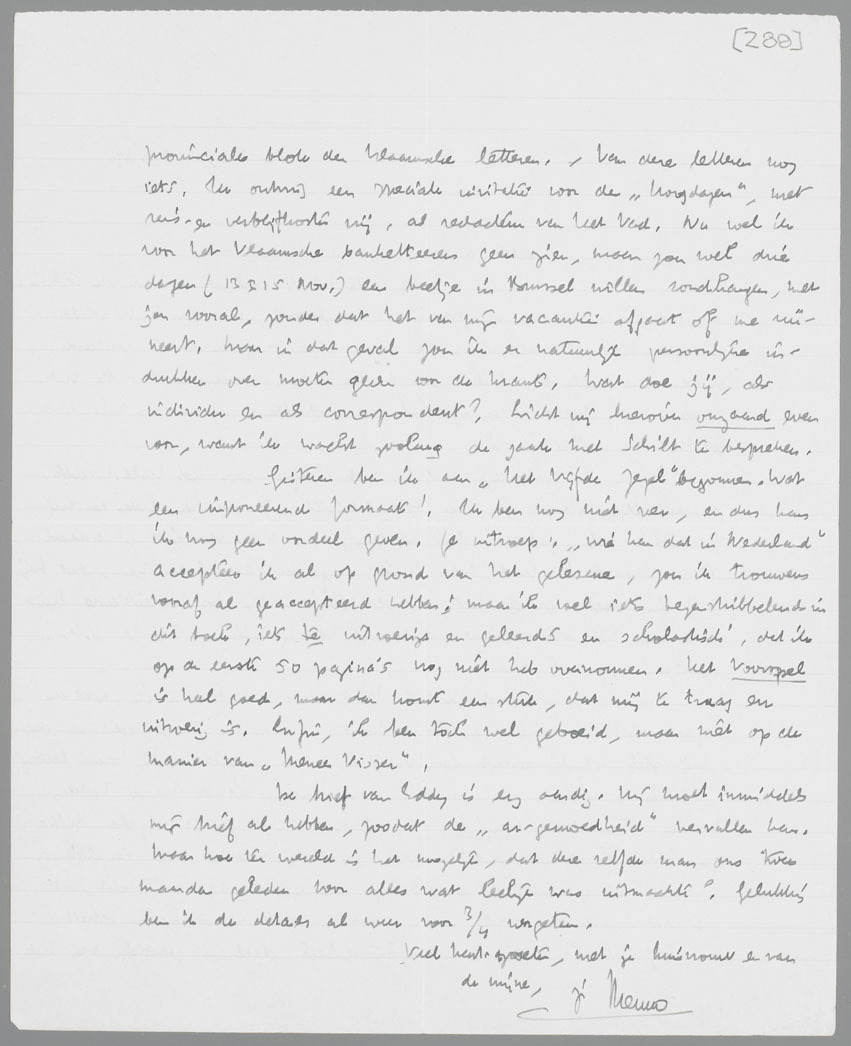 [280]
provinciale blok der Vlaamsche letteren. / Van deze letteren nog
iets. Ik ontving een speciale invitatie voor de „hoogdagen", met
reis- en verblijfkosten vrij, als redacteur van het Vad. Nu wil ik
voor het Vlaamsche banketteeren geen zier, maar zou wel drie
dagen (13 à 15 Nov.) een beetje in Brussel willen rondhangen, met
jou vooral, zonder dat het van mijn vacantie afgaat of me rui-
neert. Maar in dat geval zou ik er natuurlijk persoonlijke in-
drukken over moeten geven voor de krant. Wat doe jij, als
individu en als correspondent? Licht mij hierover omgaand even
voor, want ik wacht zoolang de zaak met Schilt te bespreken.
Gisteren ben ik aan „Het Vijfde Zegel" begonnen. Wat
een imponeerend formaat! Ik ben nog niet ver, en dus kan
ik nog geen oordeel geven. Je uitroep: „wie kan dat in Nederland"
accepteer ik al op grond van het gelezene, zou ik trouwens
vooraf al geaccepteerd hebben; maar ik voel iets tegenstribbelends in
dit boek, iets te uitvoerigs en geleerds en scholastisch', dat ik
op de eerste 50 pagina's nog niet heb overwonnen. Het Voorspel
is heel goed, maar dan komt een stuk, dat mij te traag en
uitvoerig is. Enfin, ik ben toch wel geboeid, maar niet op de
manier van „Meneer Visser".
De brief van Eddy is erg aardig. Hij moet inmiddels
mijn brief al hebben, zoodat de „ar-gemoedheid" vervallen kan.
Maar hoe ter wereld is het mogelijk, dat deze zelfde man ons twee
maanden geleden voor alles wat leelijk was uitmaakte? Gelukkig
ben ik de details al weer voor 3/4 vergeten.
Veel hart. groeten, met je huisvrouw en van
de mijne, je Menno